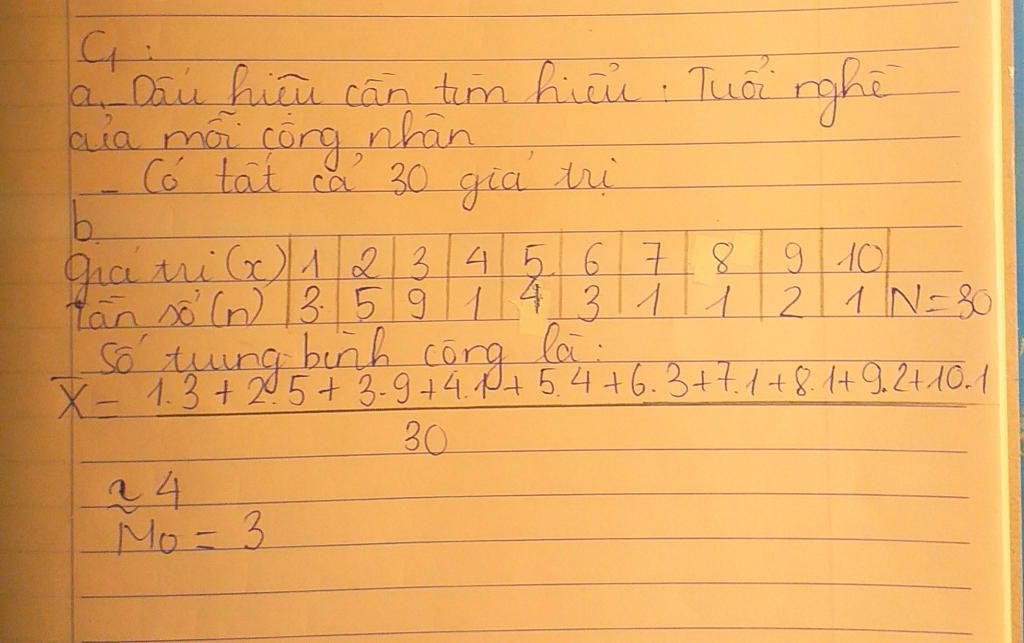 C1 :
a, Dấu hiệu cần tìm hiểu : Tuổi nghề
của mỗi công nhân
- Có tất cả 30 giá trị
b.
Giá trị (x) 1 2 3 4 5 6 7 8 9 10
Tần số (n) 3 5 9 1 4 3 1 1 2 1 N = 30
Số trung bình cộng là :
X̄ = 1.3 + 2.5 + 3.9 + 4.1 + 5.4 + 6.3 + 7.1 + 8.1 + 9.2 + 10.1
30
≈ 4
Mo = 3